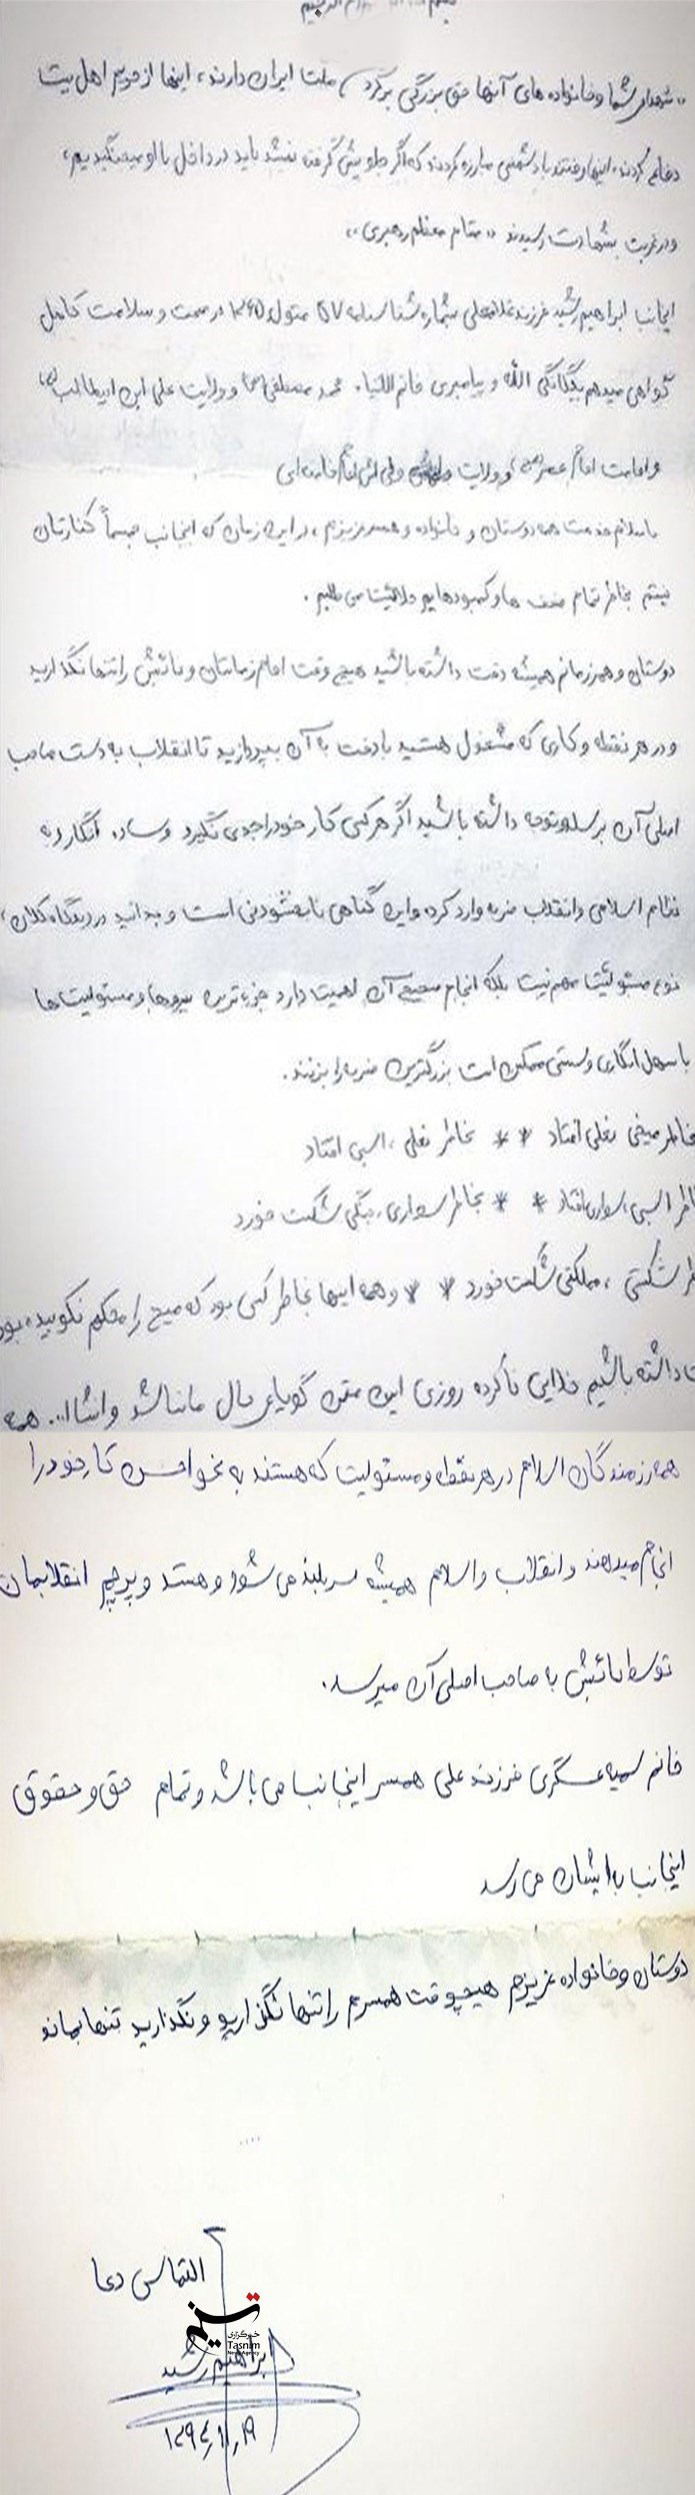 بسم الله الرحمن الرحیم
« شهدای شما و خانواده های آنها حق بزرگی بر گردن ملت ایران دارند، اینها از حریم اهل بیت
دفاع کردند، اینها رفتند با دشمنی مبارزه کردند که اگر جلویش گرفته نمیشد باید در داخل با او میجنگیدیم،
و در غربت بشهادت رسیدند « مقام معظم رهبری »
اینجانب ابراهیم رشید فرزند غلامعلی بشماره شناسنامه ۵۷ متولد ۱۳۶۵ در صحت و سلامت کامل
گواهی میدهم بیگانگی الله و پیامبری خاتم الانبیاء محمد مصطفی (ص) و ولایت علی ابن ابیطالب (ع)
و امامت امام عصر (عج) و ولایت ولی امر امام خامنه ای
با سلام خدمت همه دوستان و خانواده و همسر عزیزم، در این زمان که اینجانب جسماً کنارتان
نیستم بخاطر تمام ضعف ها و کمبودهایم حلالیت می طلبم.
دوستان و همرزمانم همیشه دقت داشته باشید هیچ وقت امام زمانتان و نائبش را تنها نگذارید
و در هر نقطه و کاری که مشغول هستید با دقت به آن بپردازید تا انقلاب به دست صاحب
اصلی آن برسد و توجه داشته باشید اگر هرکس کار خود را جدی نگیرد و ساده انگارد به
نظام اسلامی و انقلاب ضربه وارد کرده و این گناهی نابخشودنی است و بدانید در دیدگاه کلان،
نوع مسئولیت مهم نیست بلکه انجام صحیح آن اهمیت دارد جزء ترین نیروها و مسئولیت ها
با سهل انگاری و سستی ممکن است بزرگترین ضربه را بزنند.
بخاطر میخی نعلی افتاد ** بخاطر نعلی، اسبی افتاد
خاطر اسبی، سواری افتاد ** بخاطر سواری، جنگی شکست خورد
طر شکستی، مملکتی شکست خورد ** و همه اینها بخاطر کسی بود که میخ را محکم نکوبیده بود
داشته باشیم خدایی ناکرده روزی این متن گویای حال ما نباشد و انشاا... همه
همه رزمندگان اسلام در هر نقطه و مسئولیت که هستند به نحو احسن کار خود را
انجام میدهند و انقلاب و اسلام همیشه سربلند می شود و هستند و پرچم انقلابمان
توسط نائبش به صاحب اصلی آن میرسد.
خانم سمیه عسگری فرزند علی همسر اینجانب می باشد و تمام حق و حقوق
اینجانب به ایشان می رسد
دوستان و خانواده عزیزم هیچوقت همسرم را تنها نگذارید و نگذارید تنها بماند
....
التماس دعا
تسنیم
خبرگزاری
Tasnim
News Agency
ابراهیم رشید
۱۳۹۴,۱۱,۱۹